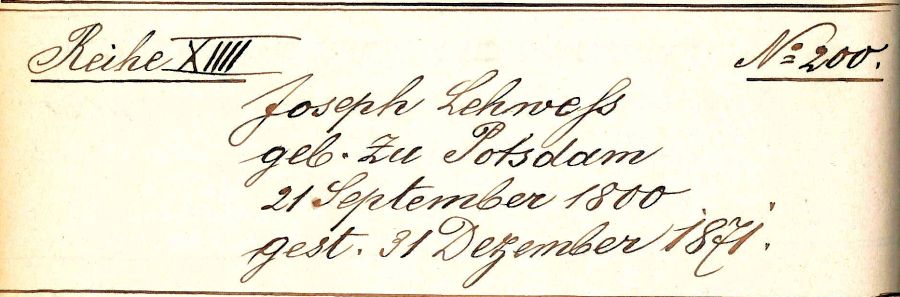 Reihe XIIII
No 200.
Joseph Lehweſs
geb. zu Potsdam
21 September 1800
gest. 31 Dezember 1871.